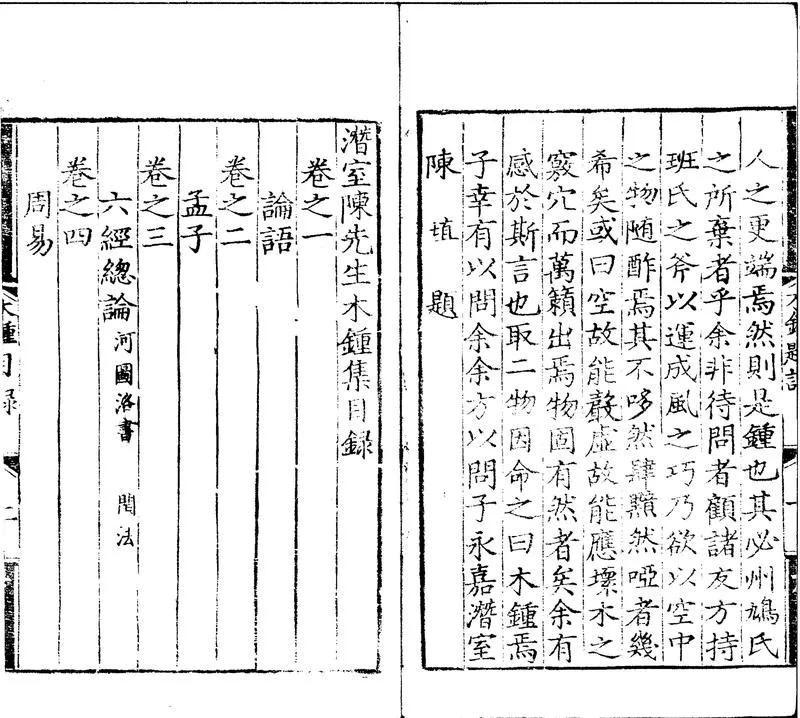 人之更端焉然則是鍾也其必州鳩氏
之所棄者乎余非待問者顧諸友方持
班氏之斧以運成風之巧乃欲以空中
之物随酢焉其不哆然肆顙然啞者幾
希矣或曰空故能聲虛故能應壞木之
竅穴而萬籟出焉物固有然者矣余有
感於斯言也取二物因命之曰木鍾焉
子幸有以問余余方以問子永嘉潛室
陳埴題
潛室陳先生木鍾集目錄
卷之一
論語
卷之二
孟子
卷之三
六經總論 河圖洛書 閏法
卷之四
周易